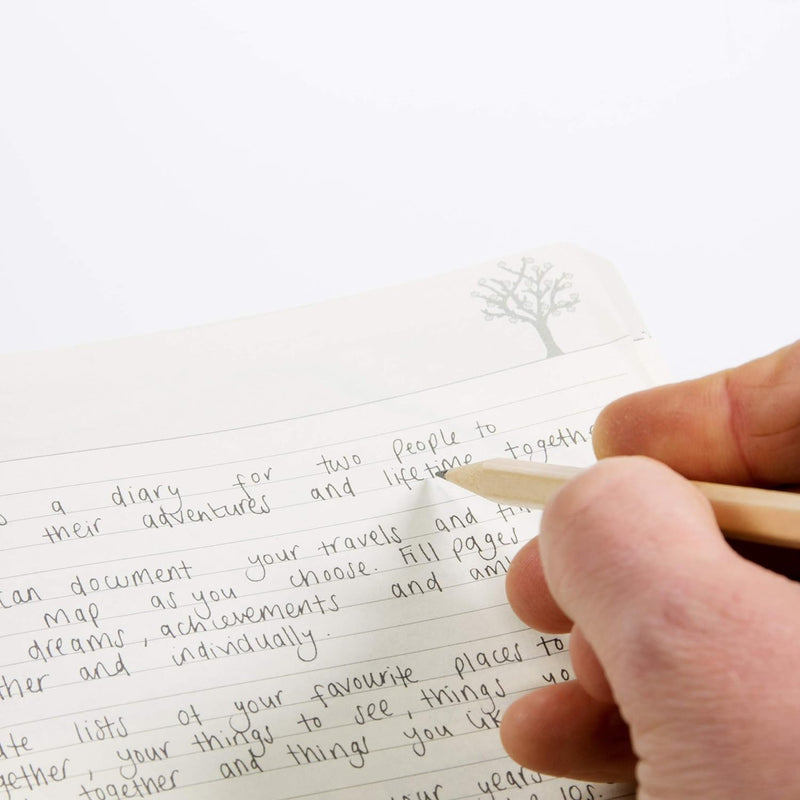 a diary for two people to
their adventures and lifetime togeth
can document your travels and
map as you choose. Fill pages
dreams, achievements and am
ther and individually.
ate lists of your favourite places to
gether, your things to see, things yo
together and things you
your years